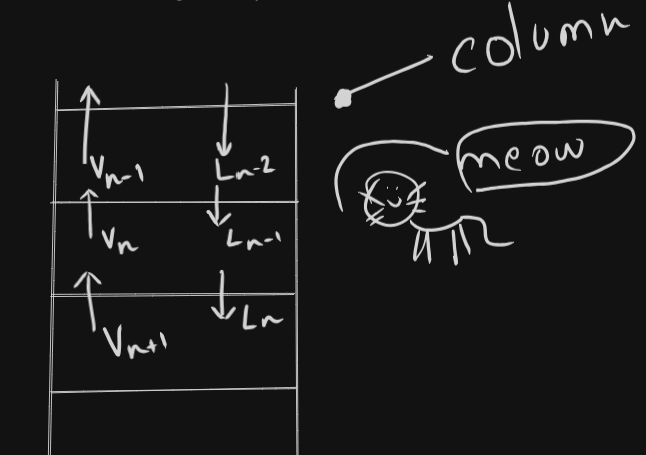 column
meow
V_{n-1} L_{n-2}
V_n L_{n-1}
V_{n+1} L_n